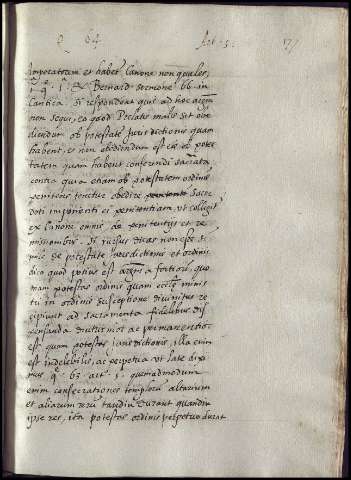 q 64 Art. 5. 177
Imperatorem et habet Canone non quales,
1. q. 1. Et Bernard sermone 66 in
Cantica. Si respondeat quis ad hoc argm
non sequi, eo quod Prelatis malis sit obe
diendum ob potestatē Jurisdictionis quam
habent, et non obediendum est eis ob potes
tatem quam habent conferendi sacrāta
contra quia etiam ob potestatem ordinis
penitens tenetur obedire Sacer
doti imponenti ei penitentiam, ut colligit
ex Canone omnis, de penitentijs et re
missionibus. Si rursus dicas non esse si
mile de potestate jurisdictionis et ordinis
dico quod potius est argm a fortiori, quo
niam potestas ordinis quam ecclię minis
tri in ordinis susceptione divinitus re
cipiunt ad sacramenta fidelibus dis
pensanda diuturnior ac permanentior
est quam potestas iurisdictionis, illa enim
est indelebilis, ac perpetua ut late dixi
mus q. 63. art. 5. quemadmodum
enim consecrationes templorū altarium
et aliarum rerū tandiu durant quandiu
ipse res, ita potestas ordinis perpetuo durat